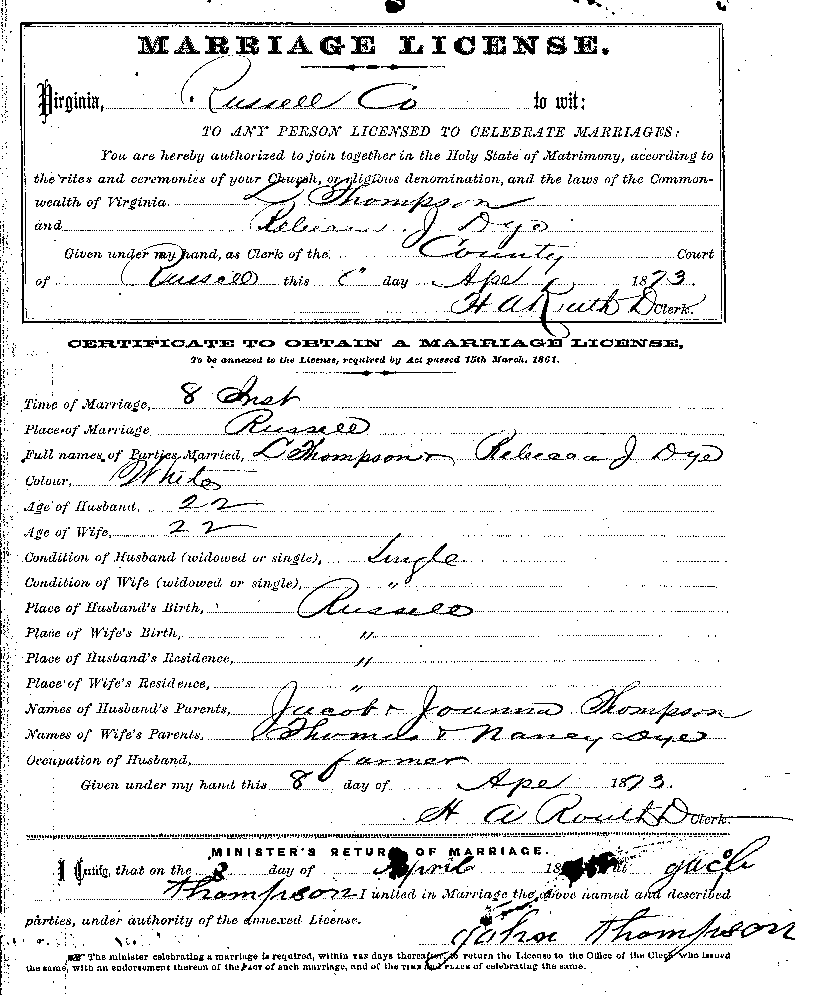 MARRIAGE LICENSE.
Virginia, Russell Co to wit:
TO ANY PERSON LICENSED TO CELEBRATE MARRIAGES:
You are hereby authorized to join together in the Holy State of Matrimony, according to
the rites and ceremonies of your Church, or religious denomination, and the laws of the Common-
wealth of Virginia. L Thompson
and Rebecca J Dye
Given under my hand, as Clerk of the County Court
of Russell this day Ape 1873.
H A Routh D Clerk.
CERTIFICATE TO OBTAIN A MARRIAGE LICENSE,
To be annexed to the License, required by Act passed 15th March, 1861.
Time of Marriage, 8 Inst
Place of Marriage Russell
Full names of Parties Married, L Thompson & Rebecca J Dye
Colour, White
Age of Husband, 22
Age of Wife, 22
Condition of Husband (widowed or single), Single
Condition of Wife (widowed or single), "
Place of Husband's Birth, Russell
Place of Wife's Birth, "
Place of Husband's Residence, "
Place of Wife's Residence, "
Names of Husband's Parents, Jacob & Joanna Thompson
Names of Wife's Parents, Thomas & Nancy Dye
Occupation of Husband, farmer
Given under my hand this 8 day of Ape 1873.
H A Routh D Clerk.
MINISTER'S RETURN OF MARRIAGE.
I Certify, that on the 8 day of April 18 at Jacb
Thompson I united in Marriage the above named and described
parties, under authority of the annexed License.
John Thompson
The minister celebrating a marriage is required, within TEN days thereafter, to return the License to the Office of the Clerk who issued
the same, with an endorsement thereon of the FACT of such marriage, and of the TIME and PLACE of celebrating the same.